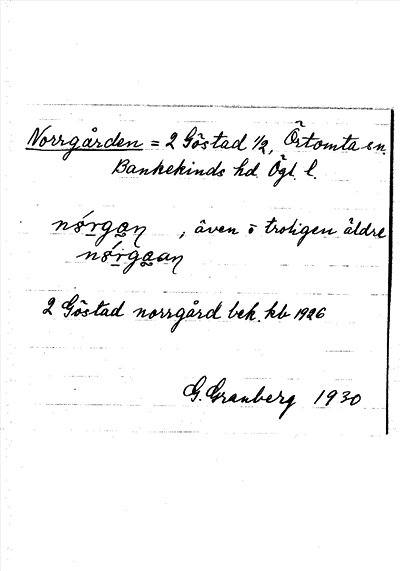 Norrgården = 2 Göstad 1/2, Örtomta sn.
Bankekinds hd. Ögl. l.
, även o troligen äldre
2 Göstad norrgård bek. kb 1926
G. Granberg 1930